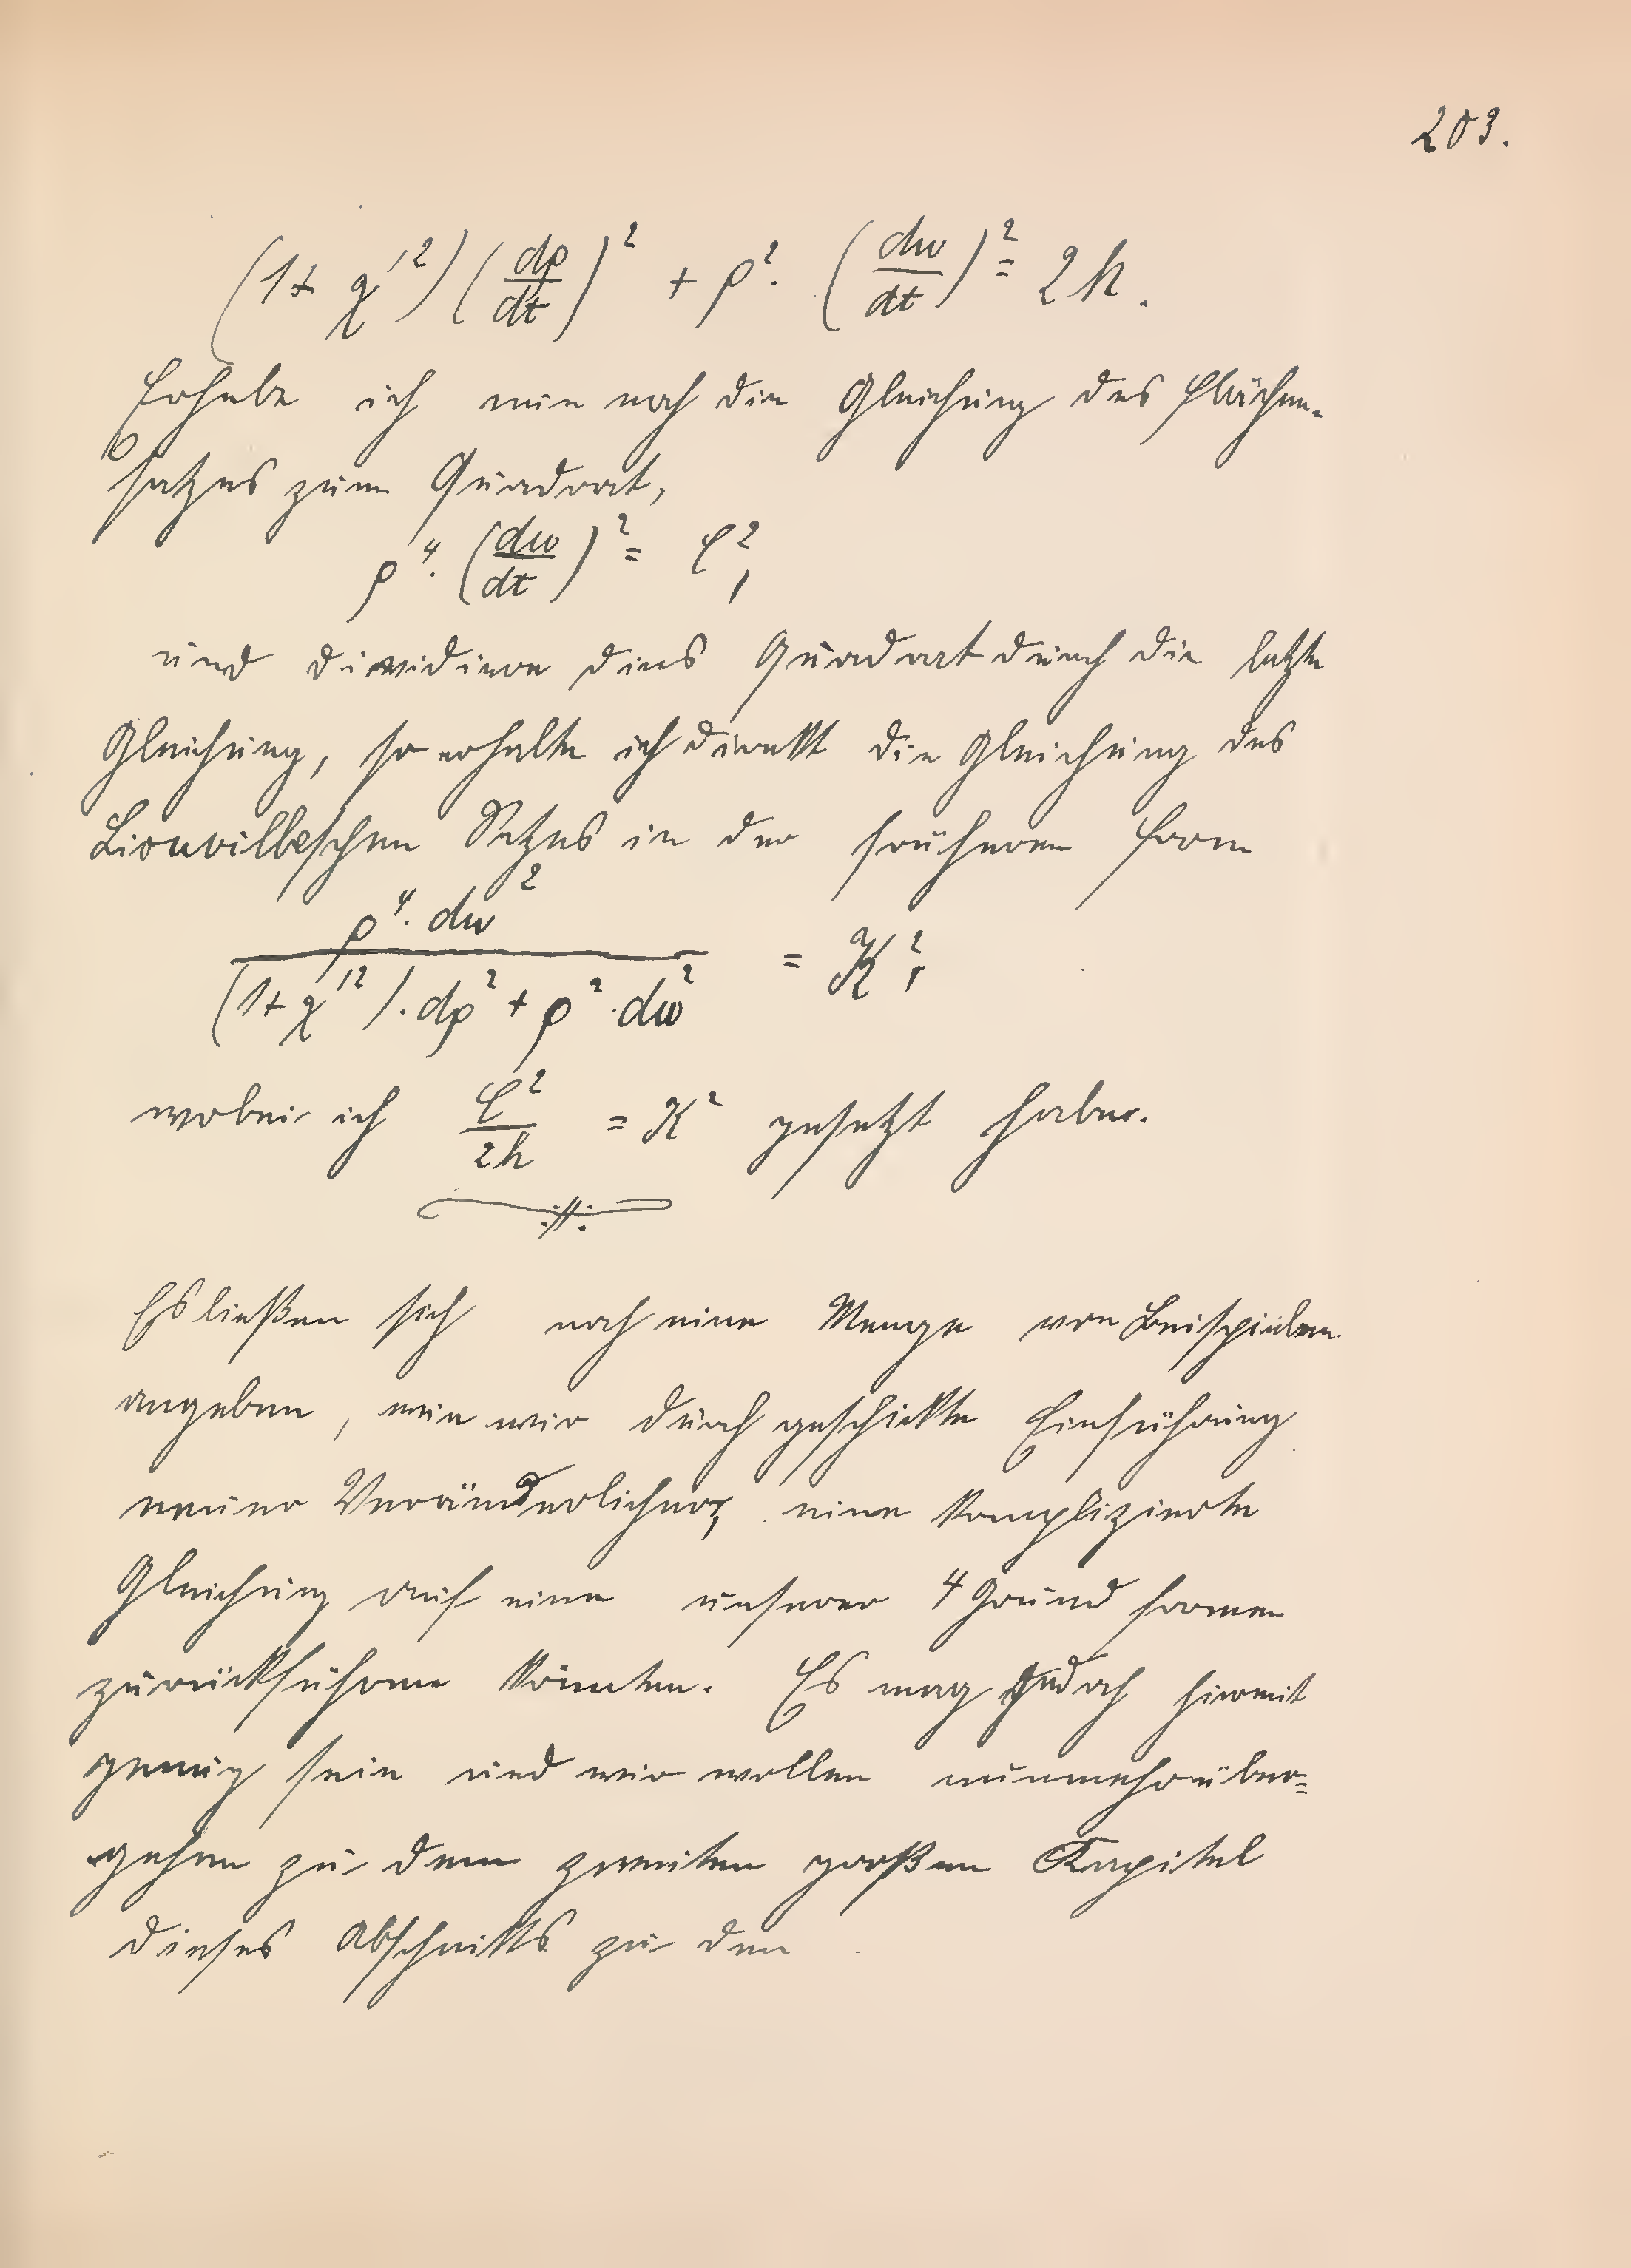 203.
(1+χ'²)(dρ/dt)² + ρ². (dω/dt)² = 2h.
Erhebe ich nun noch die Gleichung des Flächen-
satzes zum Quadrat,
ρ⁴. (dω/dt)² = C²,
und dividiere dies Quadrat durch die letzte
Gleichung, so erhalte ich direkt die Gleichung des
Liouvilleschen Satzes in der früheren Form
ρ⁴. dω² / (1+χ'²). dρ² + ρ². dω² = K²,
wobei ich C²/2h = K² gesetzt habe.
Es ließen sich noch eine Menge von Beispielen
angeben, wie wir durch geschickte Einführung
neuer Veränderlicher, eine komplizierte
Gleichung auf eine unserer 4 Grundformen
zurückführen könnten. Es mag jedoch hiermit
genug sein und wir wollen nunmehr über=
gehen zu dem zweiten großen Kapitel
dieses Abschnitts zu den